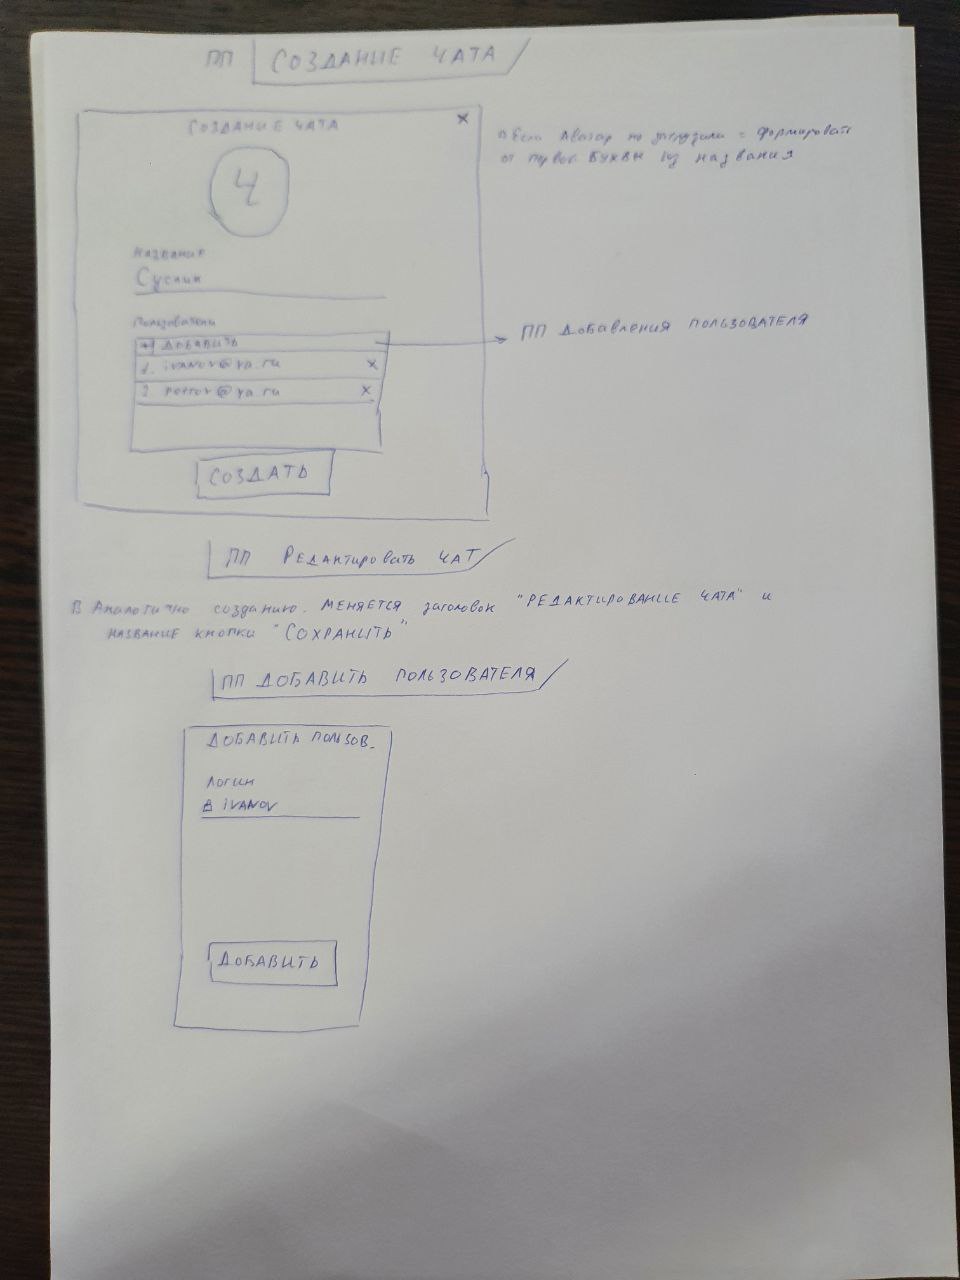 ПП СОЗДАНИЕ ЧАТА
СОЗДАНИЕ ЧАТА x
Ч
Название
Суслик
Пользователи
+ ДОБАВИТЬ
1. ivanov@ya.ru x
2. petrov@ya.ru x
СОЗДАТЬ
Если Аватар не загрузили = формировать
от первой буквы из названия
ПП Добавления пользователя
ПП Редактировать чат
Аналогично созданию. Меняется заголовок "РЕДАКТИРОВАНИЕ ЧАТА" и
название кнопки "СОХРАНИТЬ"
ПП ДОБАВИТЬ ПОЛЬЗОВАТЕЛЯ
ДОБАВИТЬ ПОЛЬЗОВ.
Логин
ivanov
ДОБАВИТЬ